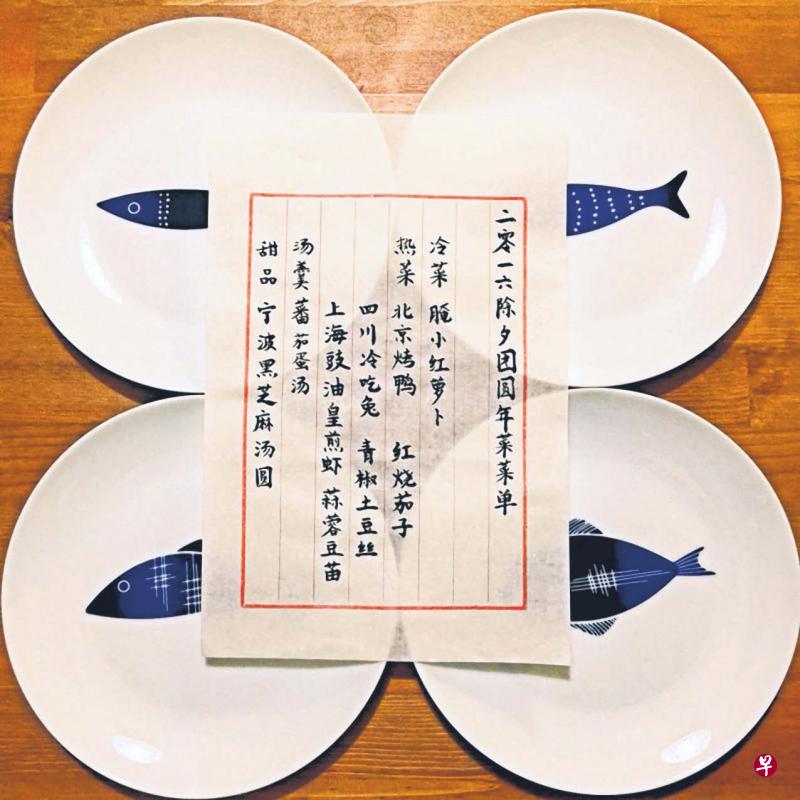 二零一六除夕团圆年菜菜单
冷菜 腌小红萝卜
热菜 北京烤鸭 红烧茄子
四川冷吃兔 青椒土豆丝
上海豉油皇煎虾 蒜蓉豆苗
汤羹 蕃茄蛋汤
甜品 宁波黑芝麻汤圆
早